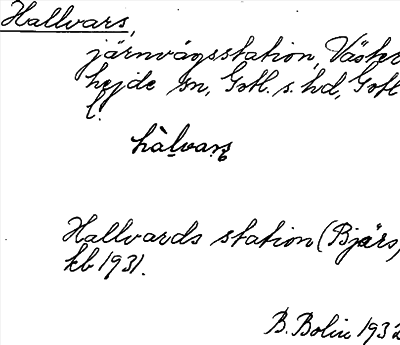 Hallvars,
järnvägsstation, Väster
hejde sn, Gotl. s. hd, Gotl
l.
hàlvaṛs
Hallvards station (Bjärs,
kb 1931.
B. Bolin 1932